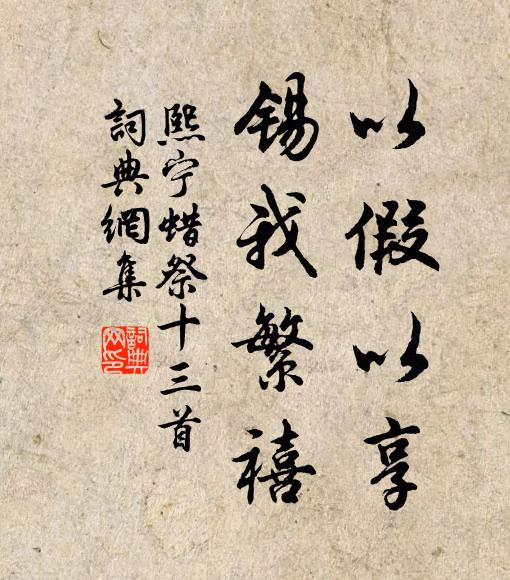 以假以享
錫我繁禧
熙宁蜡祭十三首
詞典網集
詞典网印